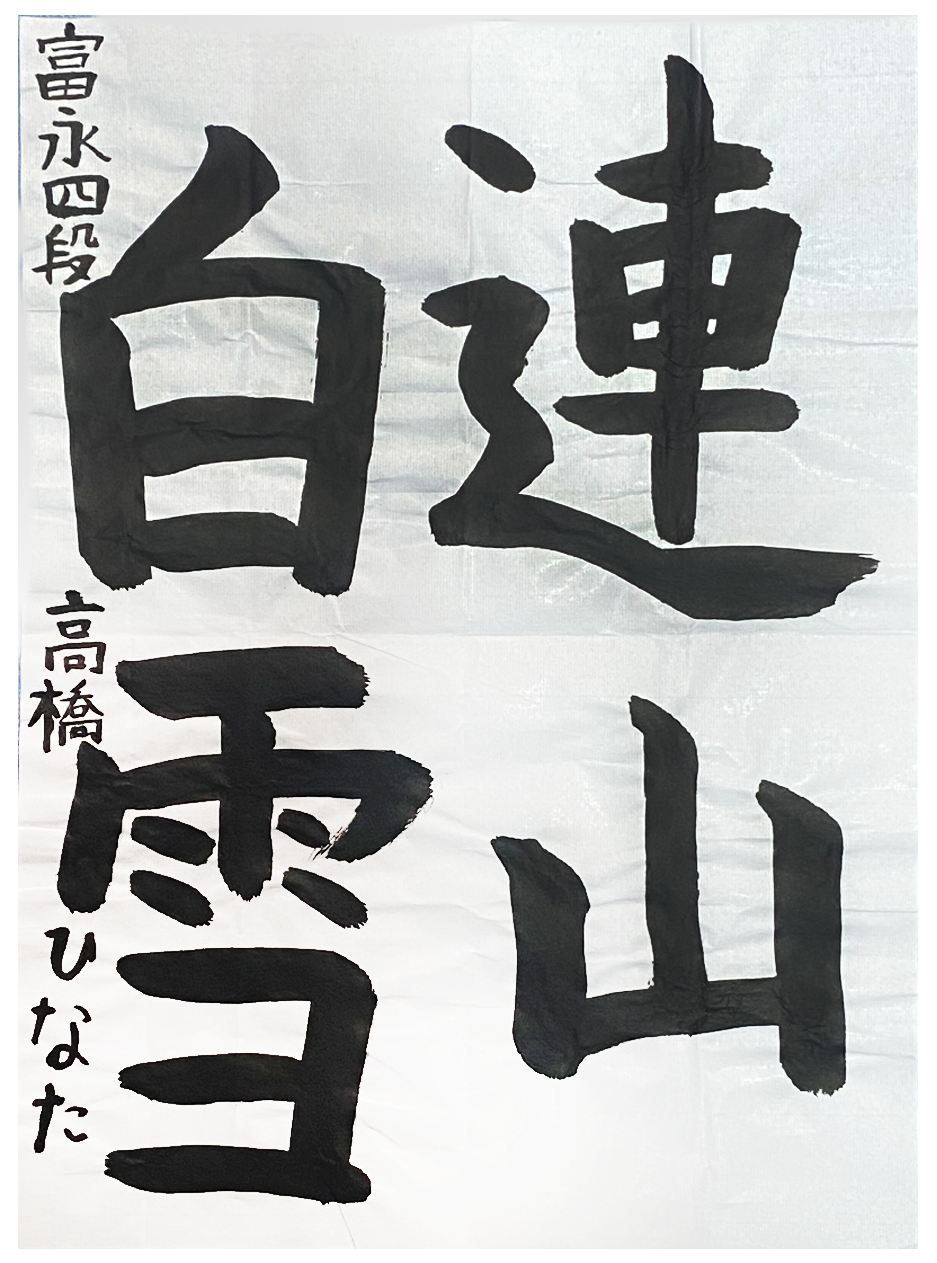 連山
白雪
富永四段 高橋ひなた